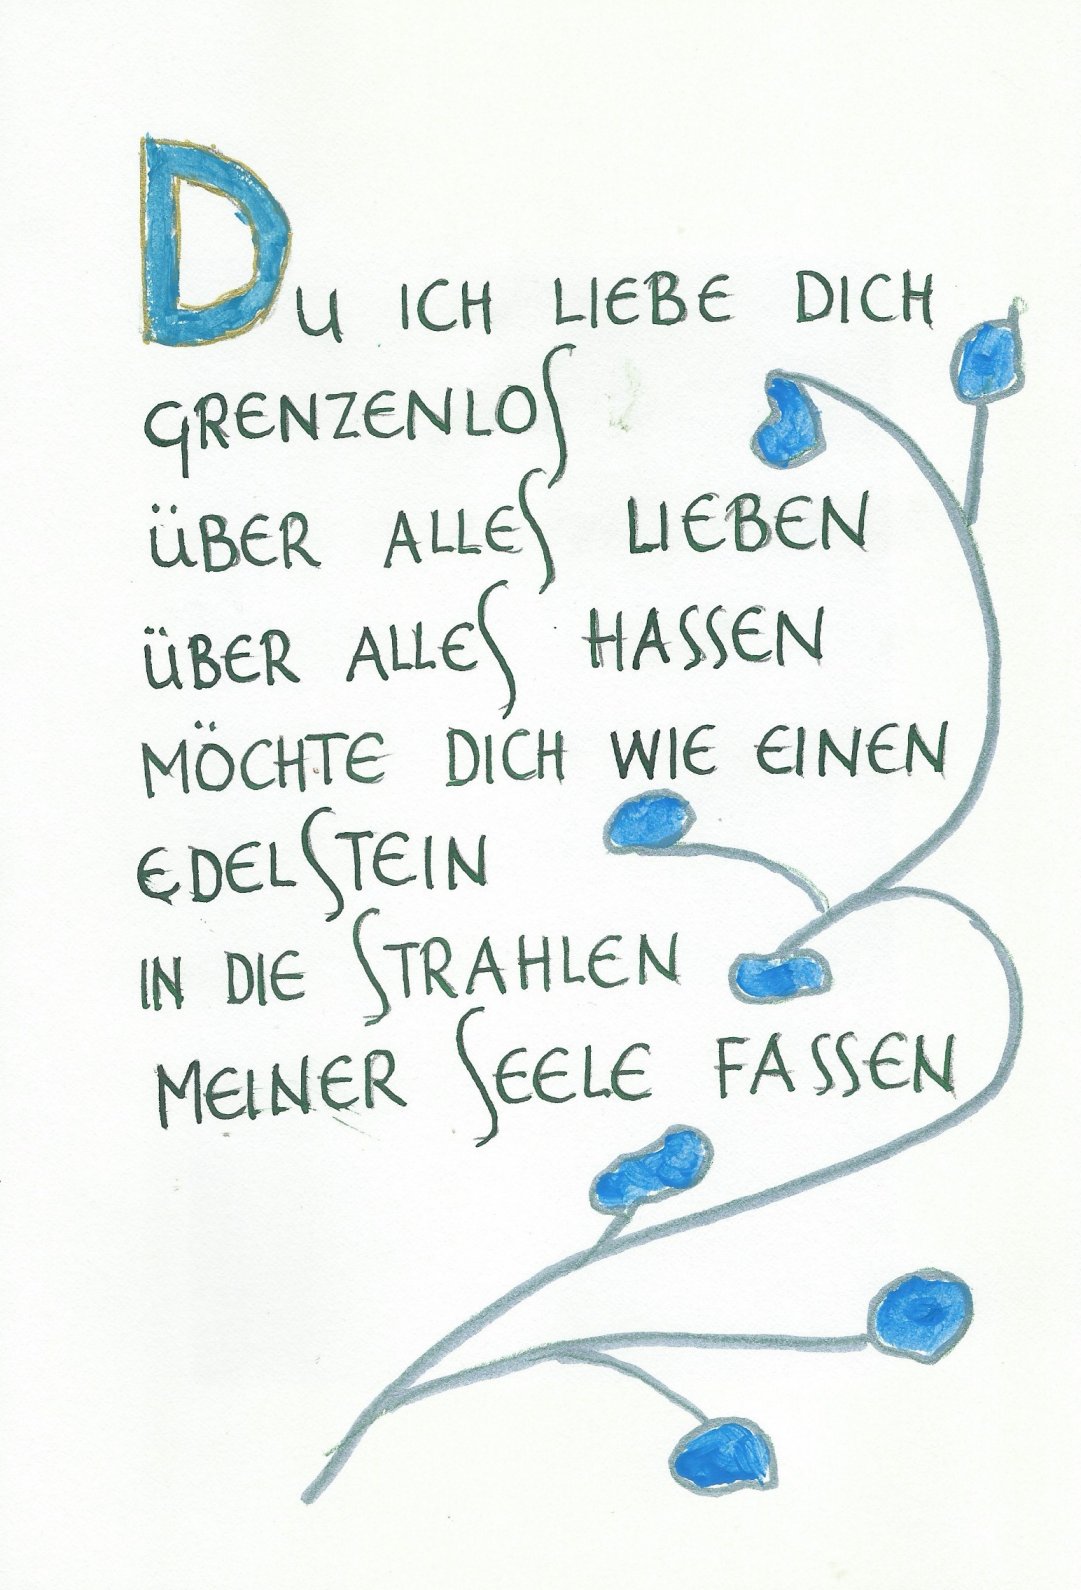 DU ICH LIEBE DICH
GRENZENLOS
ÜBER ALLES LIEBEN
ÜBER ALLES HASSEN
MÖCHTE DICH WIE EINEN
EDELSTEIN
IN DIE STRAHLEN
MEINER SEELE FASSEN